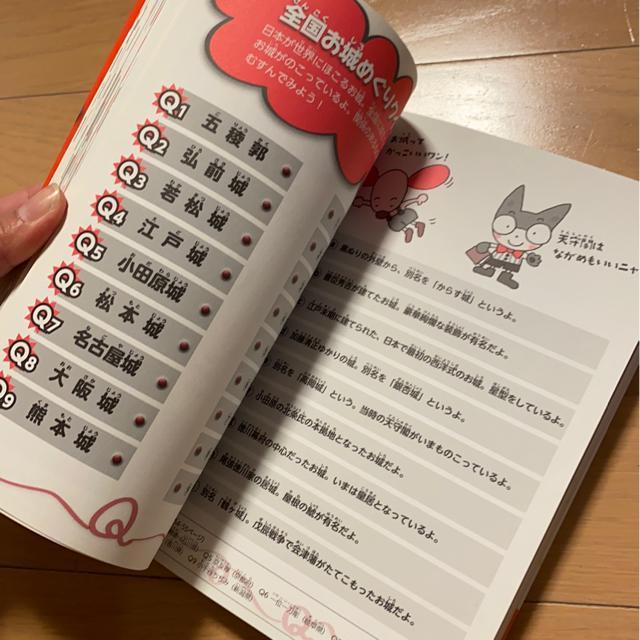 全国お城めぐり
日本が世界にほこるお城。
お城がのこっているよ。
むすんでみよう！
Q1 五稜郭
Q2 弘前城
Q3 若松城
Q4 江戸城
Q5 小田原城
Q6 松本城
Q7 名古屋城
Q8 大阪城
Q9 熊本城
お城って
かっこいいワン！
天守閣は
ながめもいいニャ
黒ぬりの外壁から、別名を「からす城」というよ。
豊臣秀吉が建てたお城。豪華絢爛な装飾が有名だよ。
江戸末期に建てられた、日本で最初の西洋式のお城。星型をしているよ。
加藤清正ゆかりの城。別名を「銀杏城」というよ。
別名を「鷹岡城」という。当時の天守閣がいまものこっているよ。
小田原の北条氏の本拠地となったお城だよ。
徳川幕府の中心だったお城。いまは皇居となっているよ。
尾張徳川家の居城。屋根の鯱が有名だよ。
別名「鶴ヶ城」。戊辰戦争で会津藩がたてこもったお城だよ。